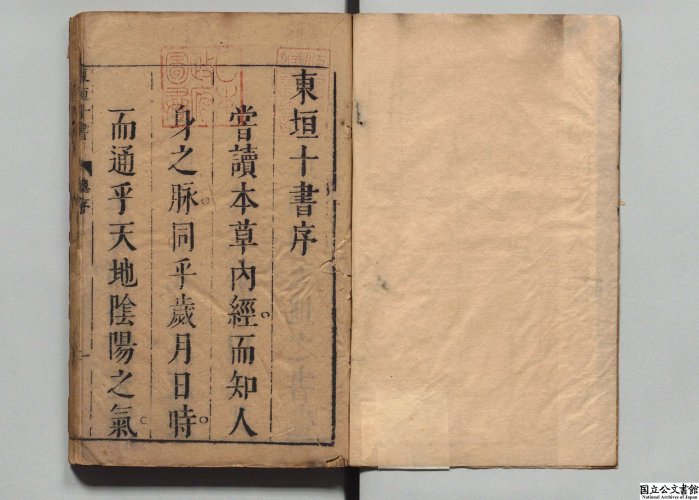 東垣十書序
嘗讀本草內經而知人
身之脉同乎歲月日時
而通乎天地陰陽之氣
東垣十書
總序
一
日本
政府
圖書
国立公文書館
National Archives of Japan